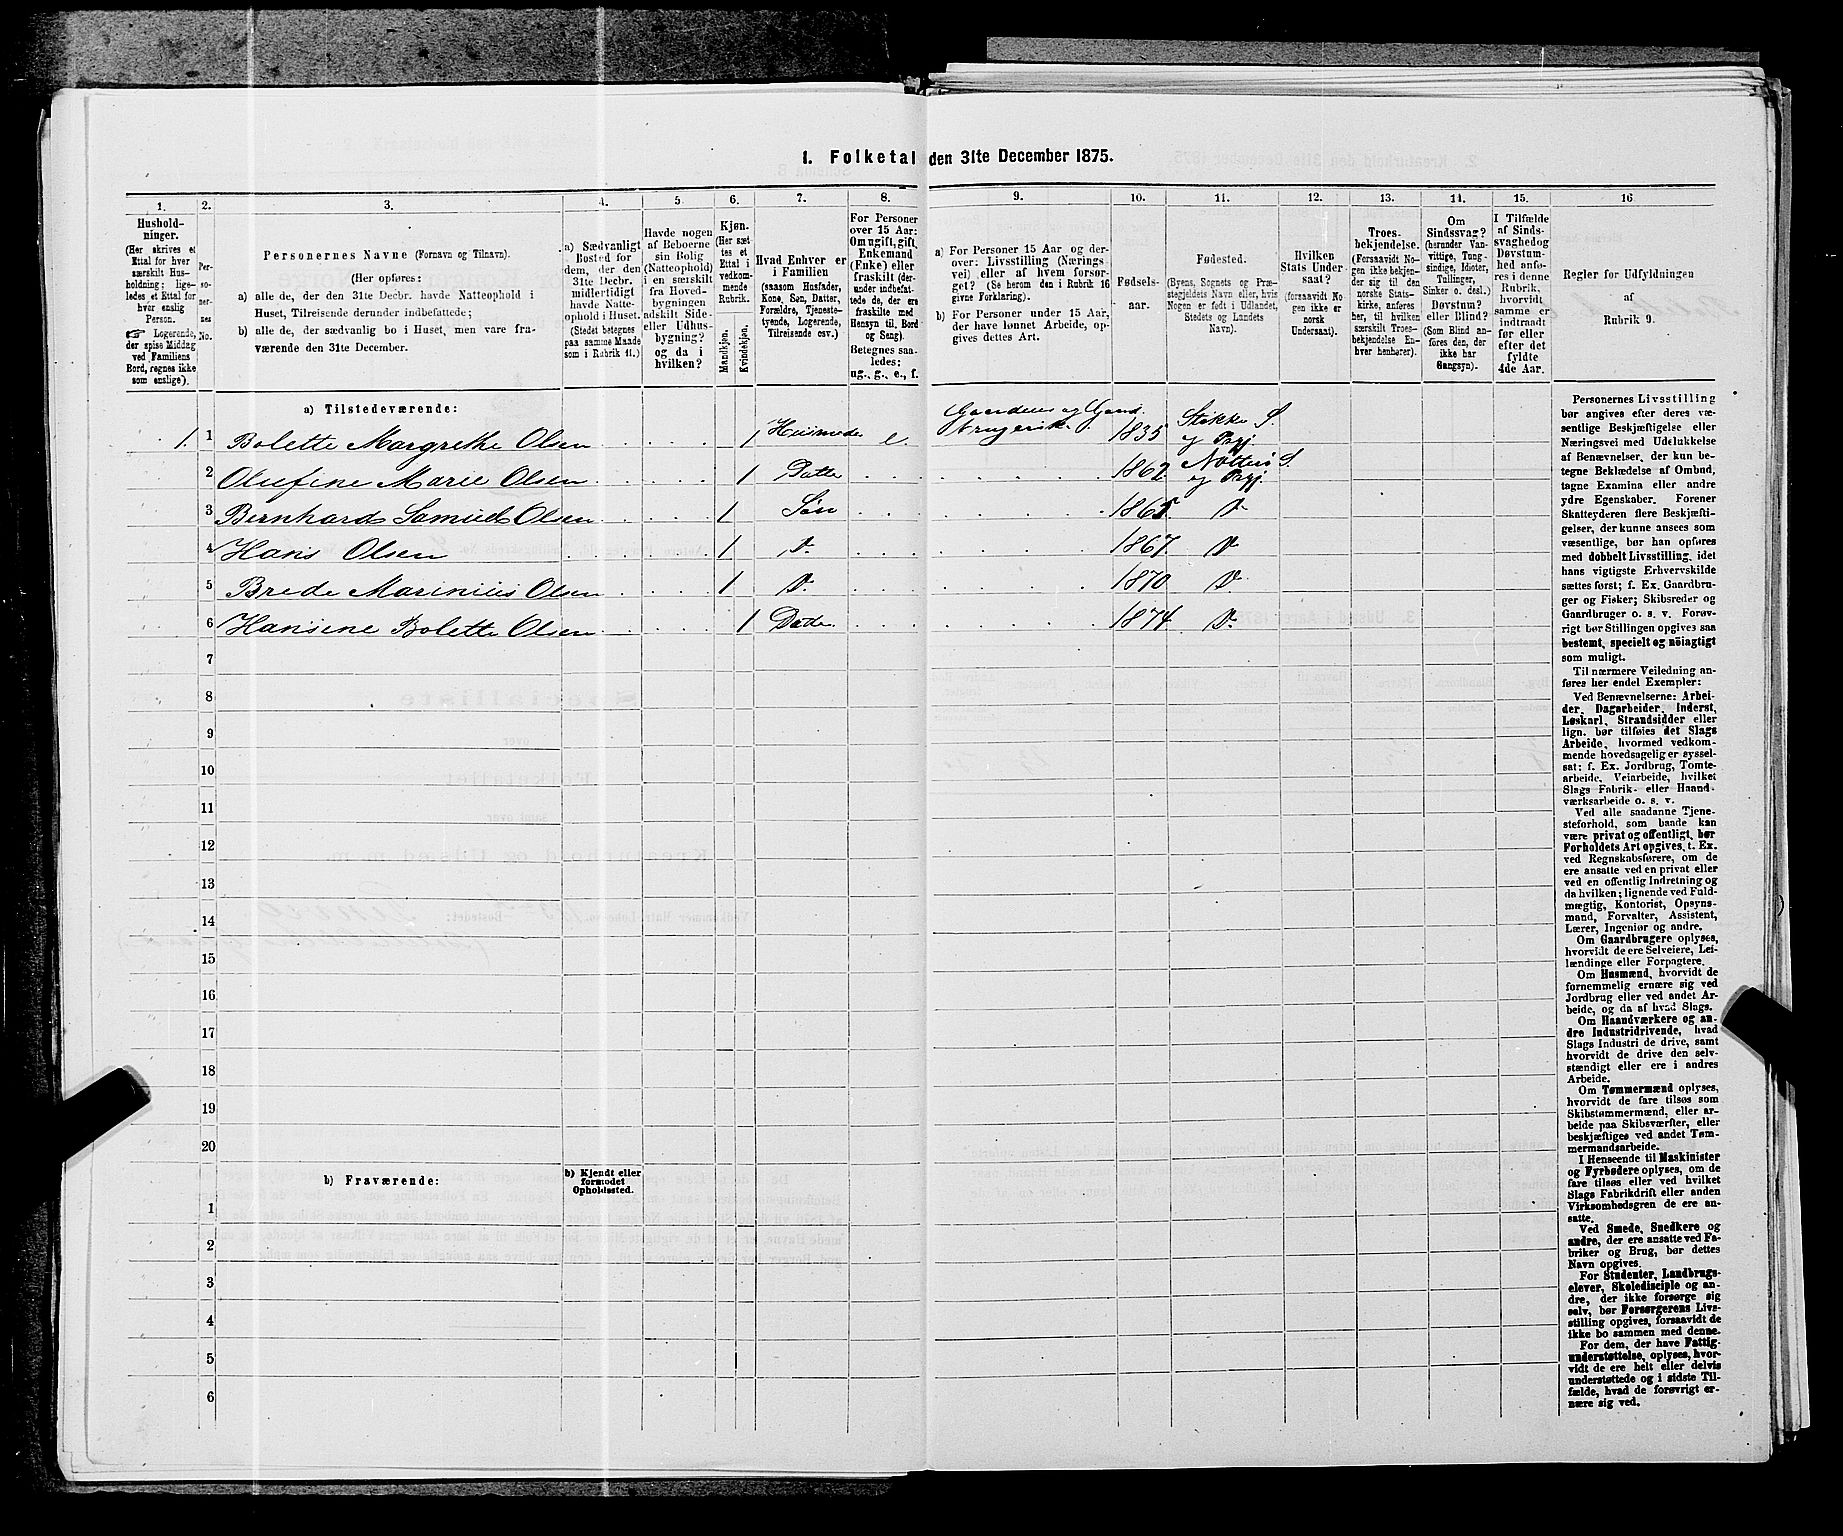 1. Folketal den 31te December 1875.
1. 2. 3. 4. 5. 6. 7. 8. 9. 10. 11. 12. 13. 14. 15. 16
Hushold-
ninger.
(Her skrives et
Ettal for hver
særskilt Hus-
holdning; lige-
ledes et Ettal for
hver enslig
Person.
☞ Logerende,
der spise Middag
ved Familiens
Bord, regnes ikke
som enslige).
Per-
so-
ner-
nes
No.
Personernes Navne (Fornavn og Tilnavn).
(Her opføres:
a) alle de, der den 31te Decbr. havde Natteophold i
Huset, Tilreisende derunder indbefattede;
b) alle de, der sædvanlig bo i Huset, men vare fra-
værende den 31te December.
a) Sædvanligt
Bosted for
dem, der den
31te Decbr.
midlertidigt
havde Natte-
ophold i Huset.
(Stedet betegnes
paa samme Maade
som i Rubrik 11.)
Havde nogen
af Beboerne
sin Bolig
(Natteophold)
i en særskilt
fra Hoved-
bygningen
adskilt Side-
eller Udhus-
bygning?
og da i
hvilken?
Kjøn.
(Her sæt-
tes et
Ettal i
vedkom-
mende
Rubrik.
Mandkjøn.
Kvindekjøn.
Hvad Enhver er
i Familien
(saasom Husfader,
Kone, Søn, Datter,
Forældre, Tjeneste-
tyende, Logerende,
Tilreisende osv.)
For Personer
over 15 Aar:
Om ugift, gift,
Enkemand
(Enke) eller
fraskilt (der-
under indbefat-
tede de, der ere
fraskilte med
Hensyn til, Bord
og Seng).
Betegnes saa-
ledes:
ug., g., e., f.
a) For Personer 15 Aar og der-
over: Livsstilling (Nærings-
vei) eller af hvem forsør-
get? (Se herom den i Rubrik 16
givne Forklaring).
b) For Personer under 15 Aar,
der have lønnet Arbeide, op-
gives dettes Art.
Fødsels-
aar.
Fødested.
(Byens, Sognets og Præ-
stegjeldets Navn eller, hvis
Nogen er født i Udlandet,
Stedets og Landets
Navn).
Hvilken
Stats Under-
saat?
(forsaavidt No-
gen ikke er
norsk
Undersaat).
Troes-
bekjendelse.
(Forsaavidt No-
gen ikke bekjen-
der sig til den
norske Stats-
kirke, anføres
her, til hvilken
særskilt Troes-
bekjendelse En-
hver henhører).
Om
Sindssvag?
(herunder Van-
vittige, Tung-
sindige, Idioter,
Tullinger,
Sinker o. desl.)
Døvstum?
eller Blind?
(Som Blind an-
føres den, der
ikke har
Gangsyn).
I Tilfælde
af Sinds-
svaghed og
Døvstum-
hed anfø-
res i denne
Rubrik,
hvorvidt
samme er
indtraadt
før eller
efter det
fyldte
4de Aar.
Regler for Udfyldningen
af
Rubrik 9.
a) Tilstedeværende:
1. 1 Bolette Margrethe Olsen 1 Husmoder e. Gaardeier og Gaard- 1835 Stokke S.
brugerske og Prgj.
2 Olufine Marie Olsen 1 Datter 1862 Nøtterø S.
og Prgj.
3 Bernhard Samuel Olsen 1 Søn 1865 D.
4 Hans Olsen 1 D. 1867 D.
5 Brede Marinius Olsen 1 D. 1870 D.
6 Hansine Bolette Olsen 1 Datter 1874 D.
7
8
9
10
11
12
13
14
15
16
17
18
19
20
b) Fraværende:
b) Kjendt eller
formodet
Opholdssted.
1
2
3
4
5
6
Personernes Livsstilling
bør angives efter deres væ-
sentlige Beskjæftigelse eller
Næringsvei med Udelukkelse
af Benævnelser, der kun be-
tegne Beklædelse af Ombud,
tagne Examina eller andre
ydre Egenskaber. Forener
Skatteyderen flere Beskjæfti-
gelser, der kunne ansees som
væsentlige, bør han opføres
med dobbelt Livsstilling, idet
hans vigtigste Erhvervskilde
sættes først; f. Ex. Gaardbru-
ger og Fisker; Skibsreder og
Gaardbruger o. s. v. Forøv-
rigt bør Stillingen opgives saa
bestemt, specielt og nöiagtigt
som muligt.
Til nærmere Veiledning an-
føres her endel Exempler:
Ved Benævnelserne: Arbei-
der, Dagarbeider, Inderst,
Løskarl, Strandsidder eller
lign. bør tilføies det Slags
Arbeide, hvormed vedkom-
mende hovedsagelig er syssel-
sat; f. Ex. Jordbrug, Tomte-
arbeide, Veiarbeide, hvilket
Slags Fabrik- eller Haand-
værksarbeide o. s. v.
Ved alle saadanne Tjene-
steforhold, som baade kan
være privat og offentligt, bør
Forholdets Art opgives, t. Ex.
ved Regnskabsførere, om de
ere ansatte ved en privat eller
ved en offentlig Indretning og
da hvilken; lignende ved Fuld-
mægtig, Kontorist, Opsyns-
mand, Forvalter, Assistent,
Lærer, Ingeniør og andre.
Om Gaardbrugere oplyses,
hvorvidt de ere Selveiere, Lei-
lændinge eller Forpagtere.
Om Husmænd, hvorvidt de
fornemmelig ernære sig ved
Jordbrug eller ved andet Ar-
beide, og da af hvad Slags.
Om Haandværkere og an-
dre Industridrivende, hvad
Slags Industri de drive, samt
hvorvidt de drive den selv-
stændigt eller ere i andres
Arbeide.
Om Tømmermænd oplyses,
hvorvidt de fare tilsøs som
Skibstømmermænd, eller ar-
beide paa Skibsværfter, eller
beskjæftiges ved andet Tøm-
mermandsarbeide.
I Henseende til Maskinister
og Fyrbødere oplyses, om de
fare tilsøs eller ved hvilket
Slags Fabrikdrift eller anden
Virksomhedsgren de ere an-
satte.
Ved Smede, Snedkere og
andre, der ere ansatte ved Fa-
briker og Brug, bør dettes
Navn opgives.
For Studenter, Landbrugs-
elever, Skoledisciple og an-
dre, der ikke forsørge sig
selv, bør Forsørgerens Livs-
stilling opgives, forsaavidt de
ikke bo sammen med denne.
For dem, der have Fattig-
understøttelse, oplyses, hvor-
vidt de ere helt eller delvis
understøttede og i sidste Til-
fælde, hvad de forøvrigt er-
nære sig ved.